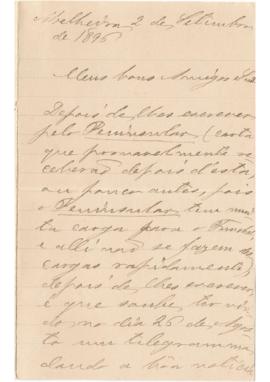 Mealheira 2 de Setembro
de 1896
Meus bons Amigos Srs
Depois de lhes escrever
pelo Peninsular (carta
que provavelmente re
ceberão depois d'esta,
ou pouco antes, pois
o Peninsular tem mui
ta carga para o Funchal,
e alli não se fazem des
cargas rapidamente)
depois de lhes escrever
é que soube ter vin
do no dia 26 de Agosto
um telegramma
dando a bôa noticia